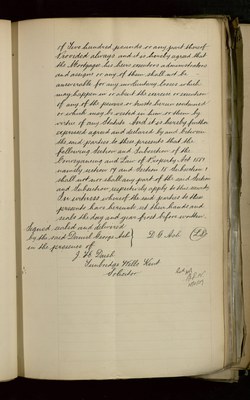 of Two hundred pounds or any part thereof
Provided always and it is hereby agreed that
the Mortgagee his heirs executors administrators
and assigns or any of them shall not be
answerable for any involuntary losses which
may happen in or about the exercise or execution
of any of the powers or trusts herein contained
or which may be vested in him or them by
virtue of any Statute And it is hereby further
expressed agreed and declared by and between
the said parties to these presents that the
following section and Subsection of the
Conveyancing and Law of Property Act 1881
namely section 17 and Section 15 Subsection 1
shall not nor shall any part of the said Section
and Subsection respectively apply to this security
In witness whereof the said parties to these
presents have hereunto set their hands and
seals the day and year first before written.
Signed sealed and delivered
by the said Daniel George Ash D. G. Ash (LS)
in the presence of
Tunbridge Wells Kent
Solicitor